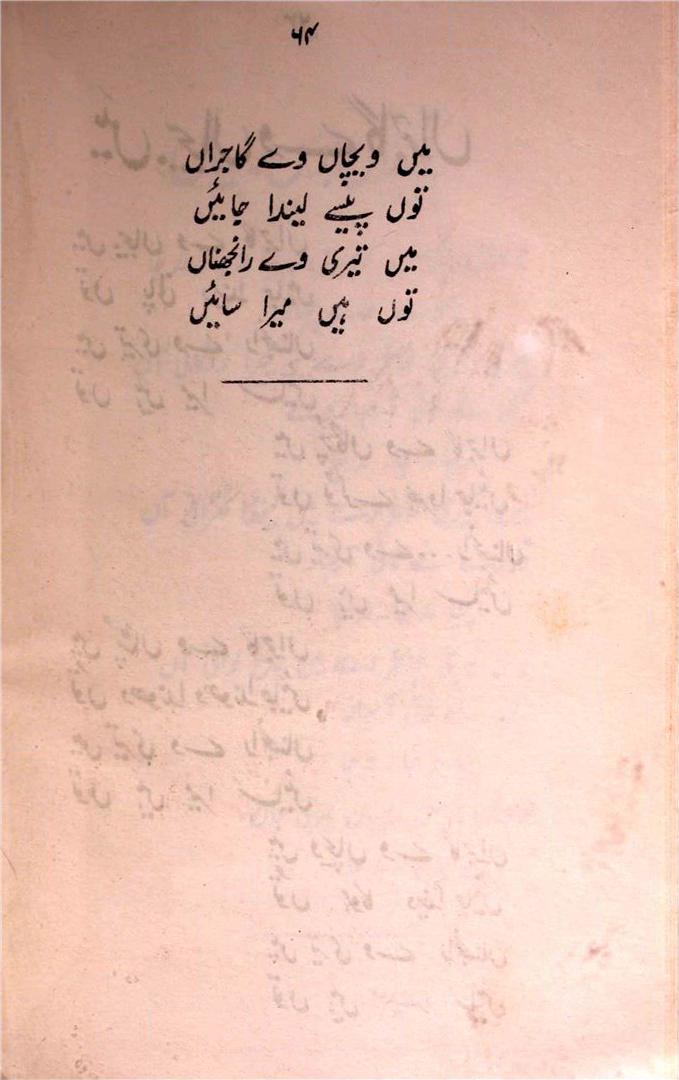 ۶۴
میں ویچاں وے گاجراں
توں پیسے لیندا جائیں
میں تیری وے رانجھناں
توں ہیں میرا سائیں